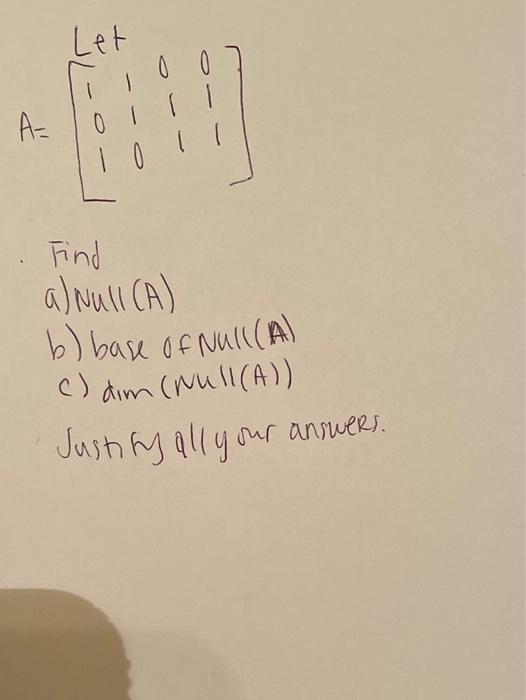 Let
A= [ 1 1 0 0
0 1 1 1
1 0 1 1 ]
. Find
a) Null (A)
b) base of Null(A)
c) dim (Null(A))
Justify all your answers.